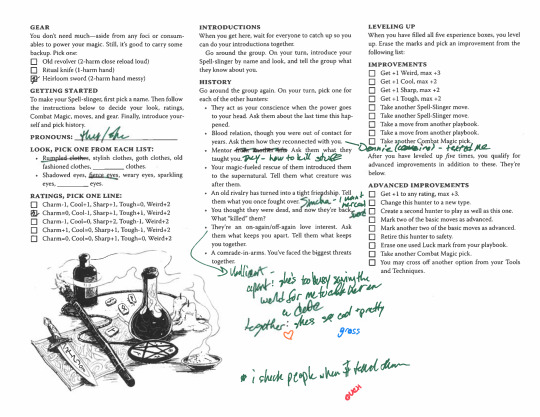 GEAR
You don't need much—aside from any foci or consum-
ables to power your magic. Still, it's good to carry some
backup. Pick one:
Old revolver (2-harm close reload loud)
Ritual knife (1-harm hand)
Heirloom sword (2-harm hand messy)
GETTING STARTED
To make your Spell-slinger, first pick a name. Then follow
the instructions below to decide your look, ratings,
Combat Magic, moves, and gear. Finally, introduce your-
self and pick history.
PRONOUNS: they/she
LOOK, PICK ONE FROM EACH LIST:
• Rumpled clothes, stylish clothes, goth clothes, old
fashioned clothes, ________ clothes.
• Shadowed eyes, fierce eyes, weary eyes, sparkling
eyes, ________ eyes.
RATINGS, PICK ONE LINE:
Charm-1, Cool+1, Sharp+1, Tough+0, Weird+2
Charm+0, Cool-1, Sharp+1, Tough+1, Weird+2
Charm-1, Cool+0, Sharp+2, Tough-1, Weird+2
Charm+1, Cool+0, Sharp+1, Tough-1, Weird+2
Charm+0, Cool+0, Sharp+1, Tough+0, Weird+2
INTRODUCTIONS
When you get here, wait for everyone to catch up so you
can do your introductions together.
Go around the group. On your turn, introduce your
Spell-slinger by name and look, and tell the group what
they know about you.
HISTORY
Go around the group again. On your turn, pick one for
each of the other hunters:
• They act as your conscience when the power goes
to your head. Ask them about the last time this hap-
pened.
• Blood relation, though you were out of contact for
years. Ask them how they reconnected with you.
• Mentor from another time Ask them what they
taught you. - how to kill
• Your magic-fueled rescue of them introduced them
to the supernatural. Tell them what creature was
after them.
• An old rivalry has turned into a tight friendship. Tell
them what you once fought over.
• You thought they were dead, and now they're back.
What "killed" them?
• They're an on-again/off-again love interest. Ask
them what keeps you apart. Tell them what keeps
you together.
• A comrade-in-arms. You've faced the biggest threats
together.
apart: she's too busy saving the
world for me to take her on
a date
together: she's so cool + pretty
gross
* i shock people when I touch them
ouch
LEVELING UP
When you have filled all five experience boxes, you level
up. Erase the marks and pick an improvement from the
following list:
IMPROVEMENTS
Get +1 Weird, max +3
Get +1 Cool, max +2
Get +1 Sharp, max +2
Get +1 Tough, max +2
Take another Spell-Slinger move.
Take another Spell-Slinger move.
Take a move from another playbook.
Take a move from another playbook.
Take another Combat Magic pick.
After you have leveled up five times, you qualify for
advanced improvements in addition to these. They're
below.
ADVANCED IMPROVEMENTS
Get +1 to any rating, max +3.
Change this hunter to a new type.
Create a second hunter to play as well as this one.
Mark two of the basic moves as advanced.
Mark another two of the basic moves as advanced.
Retire this hunter to safety.
Erase one used Luck mark from your playbook.
Take another Combat Magic pick.
You may cross off another option from your Tools
and Techniques.